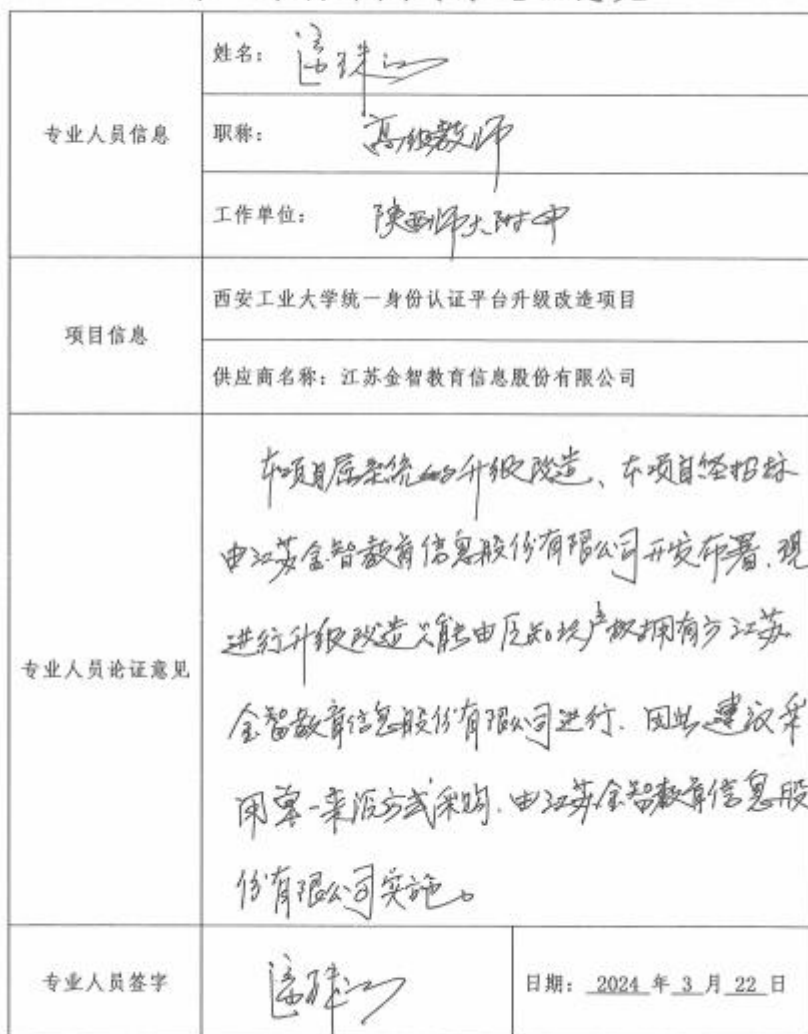 姓名:
专业人员信息
职称: 高级教师
工作单位: 陕西师大附中
西安工业大学统一身份认证平台升级改造项目
项目信息
供应商名称: 江苏金智教育信息股份有限公司
本项目属系统的升级改造、本项目经招标
由江苏金智教育信息股份有限公司开发布署,现
进行升级改造只能由原知识产权拥有方江苏
专业人员论证意见
金智教育信息股份有限公司进行.因此建议采
用单一来源方式采购.由江苏金智教育信息股
份有限公司实施。
专业人员签字
日期: 2024 年 3 月 22 日